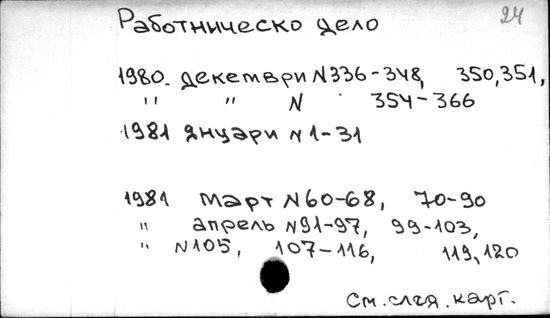 24
Работническо дело
1980. декември N336-348, 350,351,
" " N 354-366
1981 януари N1-31
1981 март N60-68, 70-90
" апрель N91-97, 99-103,
" N105, 107-116, 119,120
См.след.карт.